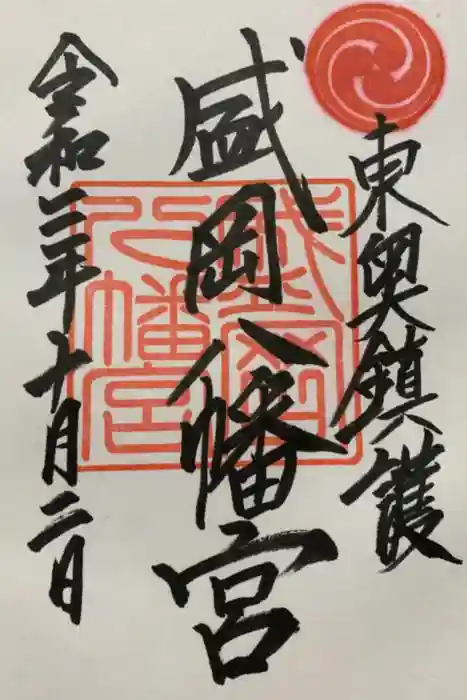 東奥鎮護
盛岡八幡宮
令和三年十月二日
盛岡八幡宮